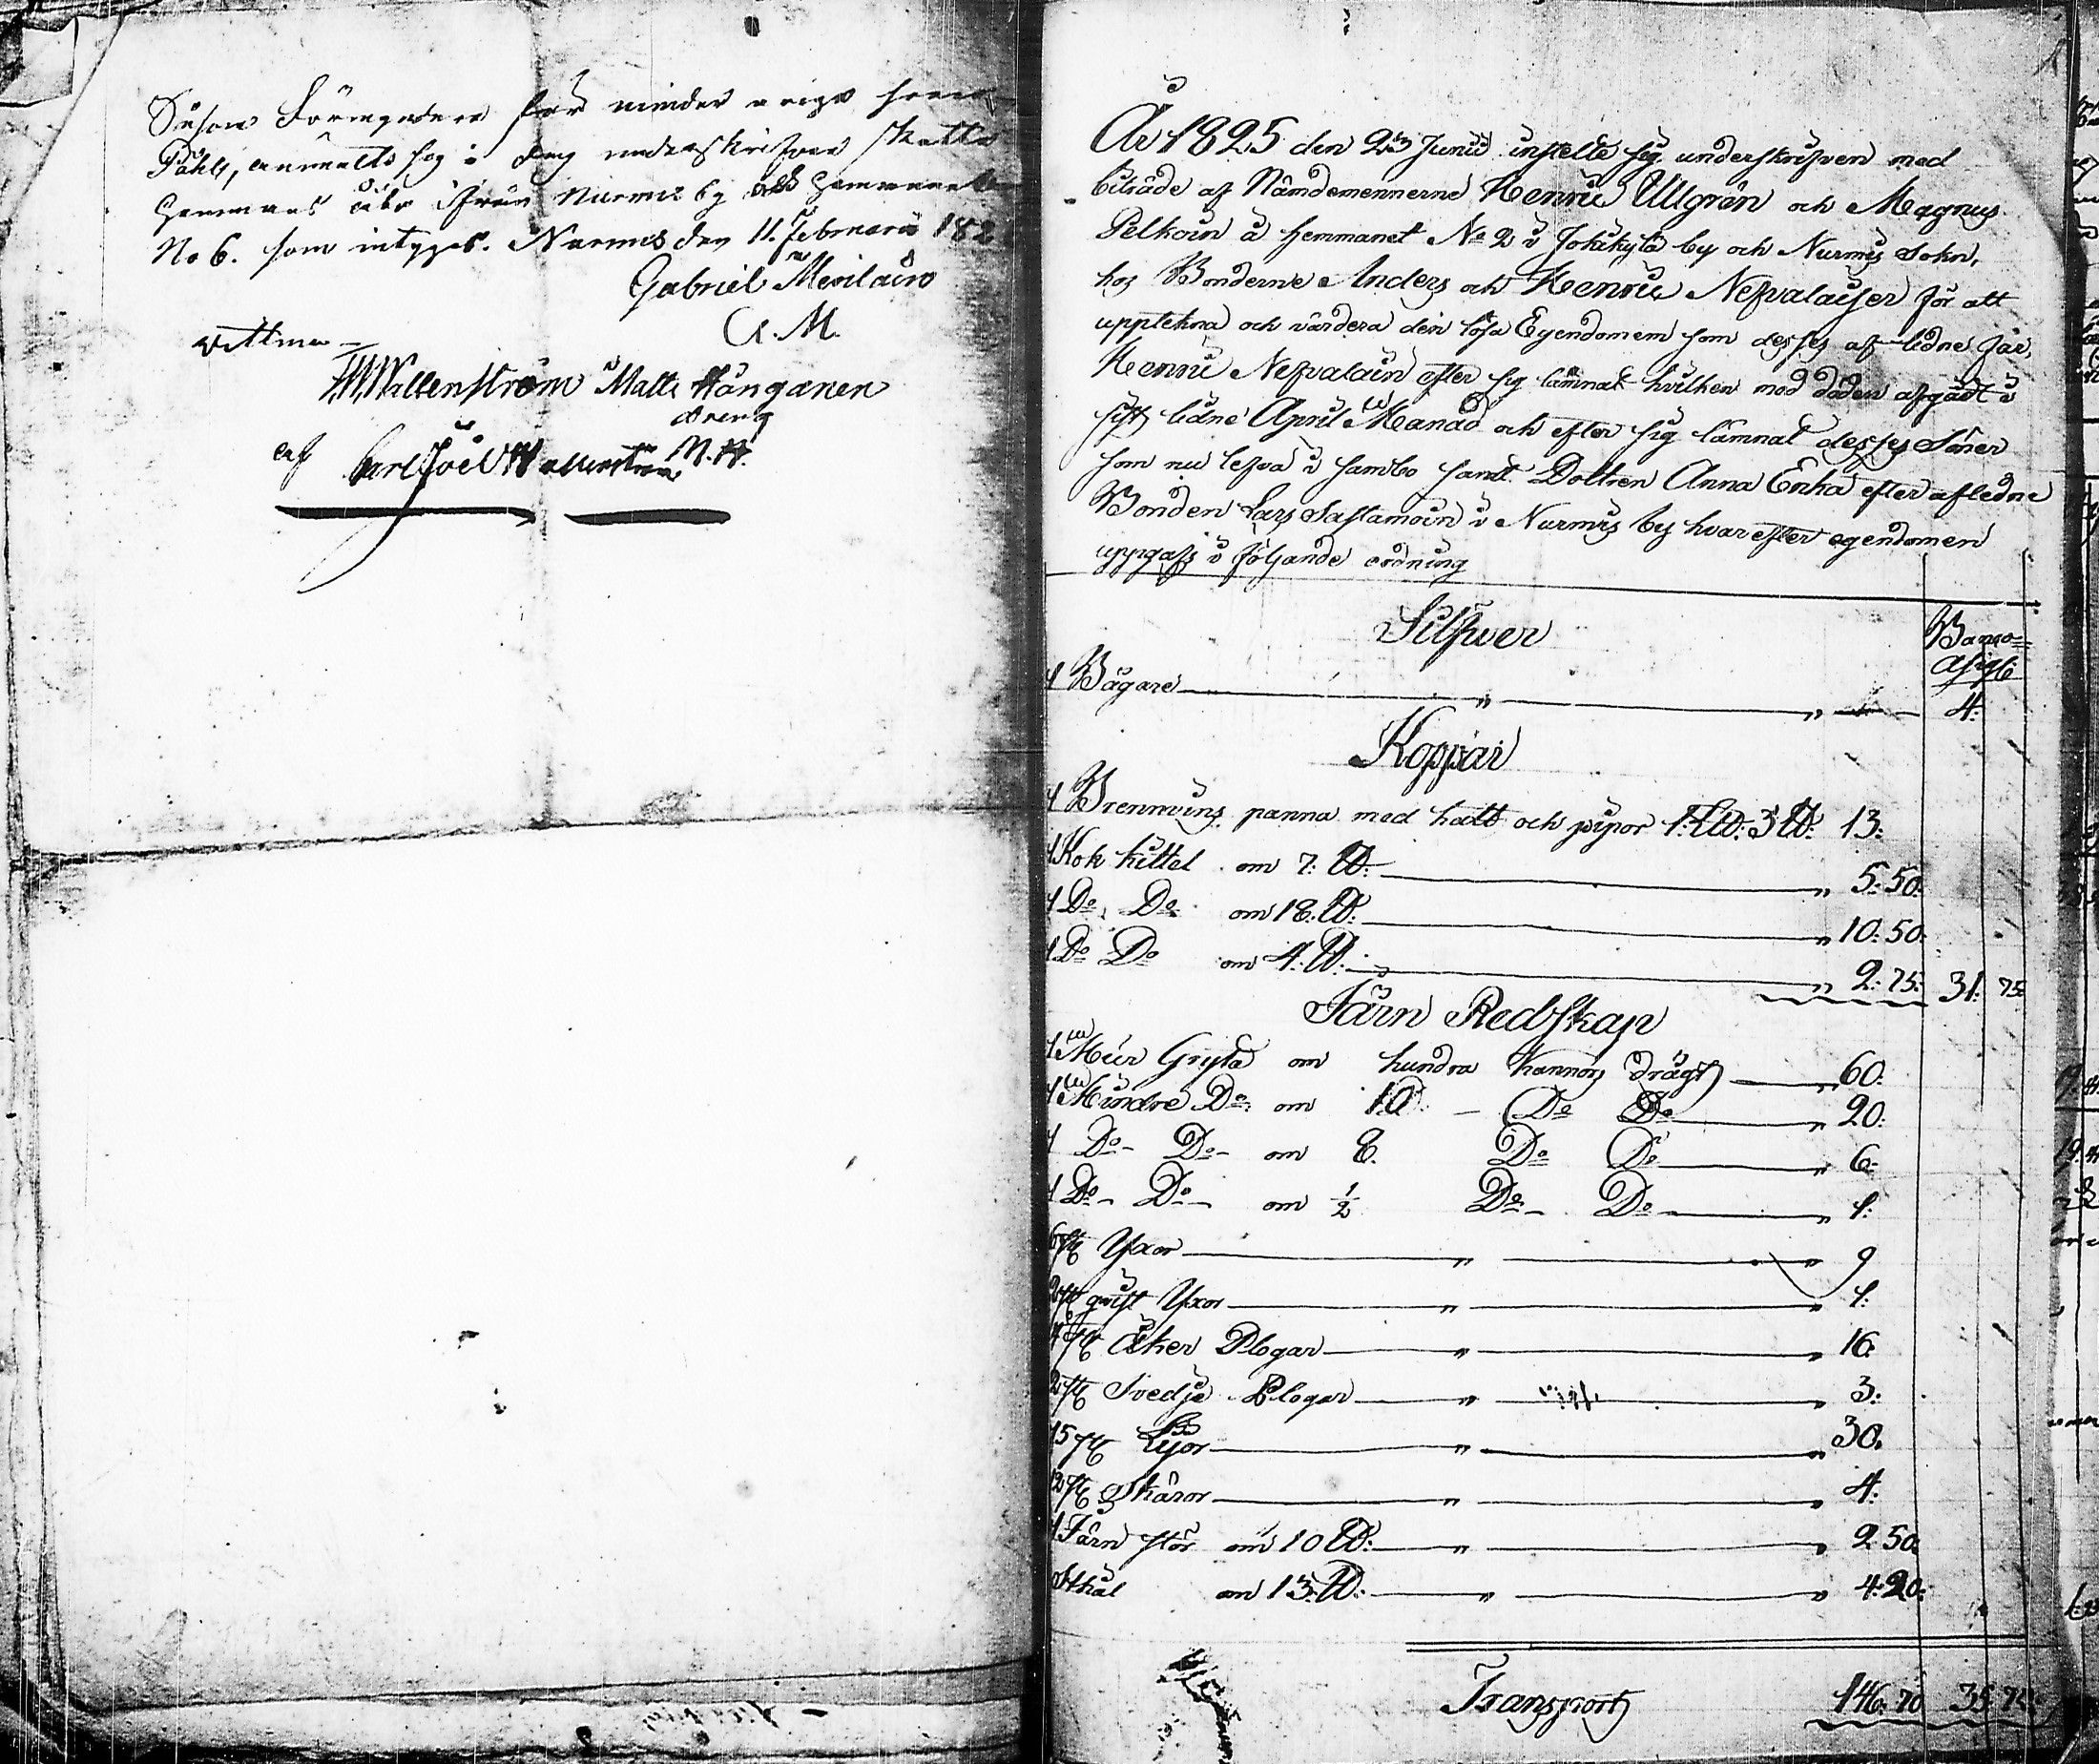 Såsom Förmyndare för minder åriga
Påhls, anmälte sig i dag underskrifven skatte
Hemmans åbo ifrån Nurmis by och Hemmanet
No 6. som intygas. Nurmis den 11. Februarii 182
Gabriel Mevilain
G. M.
Wittna
Wallenström Matts Hånganen
dreng
af Carl Joel Wallenström M. H.
År 1825 den 23 Junii instelte sig underskrifven med
biträde af Nämdemennerne Henric Ullgrén och Magnus
Pelkoin å hemmanet No 2 i Jokikylä by och Nurmis Sokn,
hos Bonderne Anders och Henric Nefvalaiser för att
upptekna och värdera den lösa Egendomem som desses aflidne Far,
Henric Nefvalain efter sig lämnat hvilken med döden afgådt i
sistlidne April Månad och efter sig lämnat desses Söner
som nu lefva i sambo samt Dottren Anna Enka efter afledne
Bonden Lars Sastamoin i Nurmis by hvarefter egendomen
uppgafs i följande ordning
Silfwer
Banco
1 Bägare " " 4:
Koppar
1 Brennvins panna med hatt och pipor 1: L℔: 3 ℔: 13:
1 Kok kittel om 7: ℔: " 5: 50:
1 Do Do om 18: ℔: " 10: 50:
1 Do Do om 4: ℔: " 2: 75: 31: 75
Järn Redskap
1 Mur Gryta om hundra kannors drägt " 60:
1 Mindre Do om 10 Do Do " 20:
1 Do Do om 8. Do Do " 6:
1 Do Do om ½ Do Do " 1:
6 st Yxor " " 9
2 st qvist Yxor " " 1:
4 st Åker Plogar " " 16:
2 st Svedje Plogar " " 3:
15 st Lijor " " 30.
12 st Skäror " " 4:
1 Järn stör om 10 ℔: " " 2: 50:
Sthål om 13: ℔: " " 4: 20:
Transport 146: 70 35 75